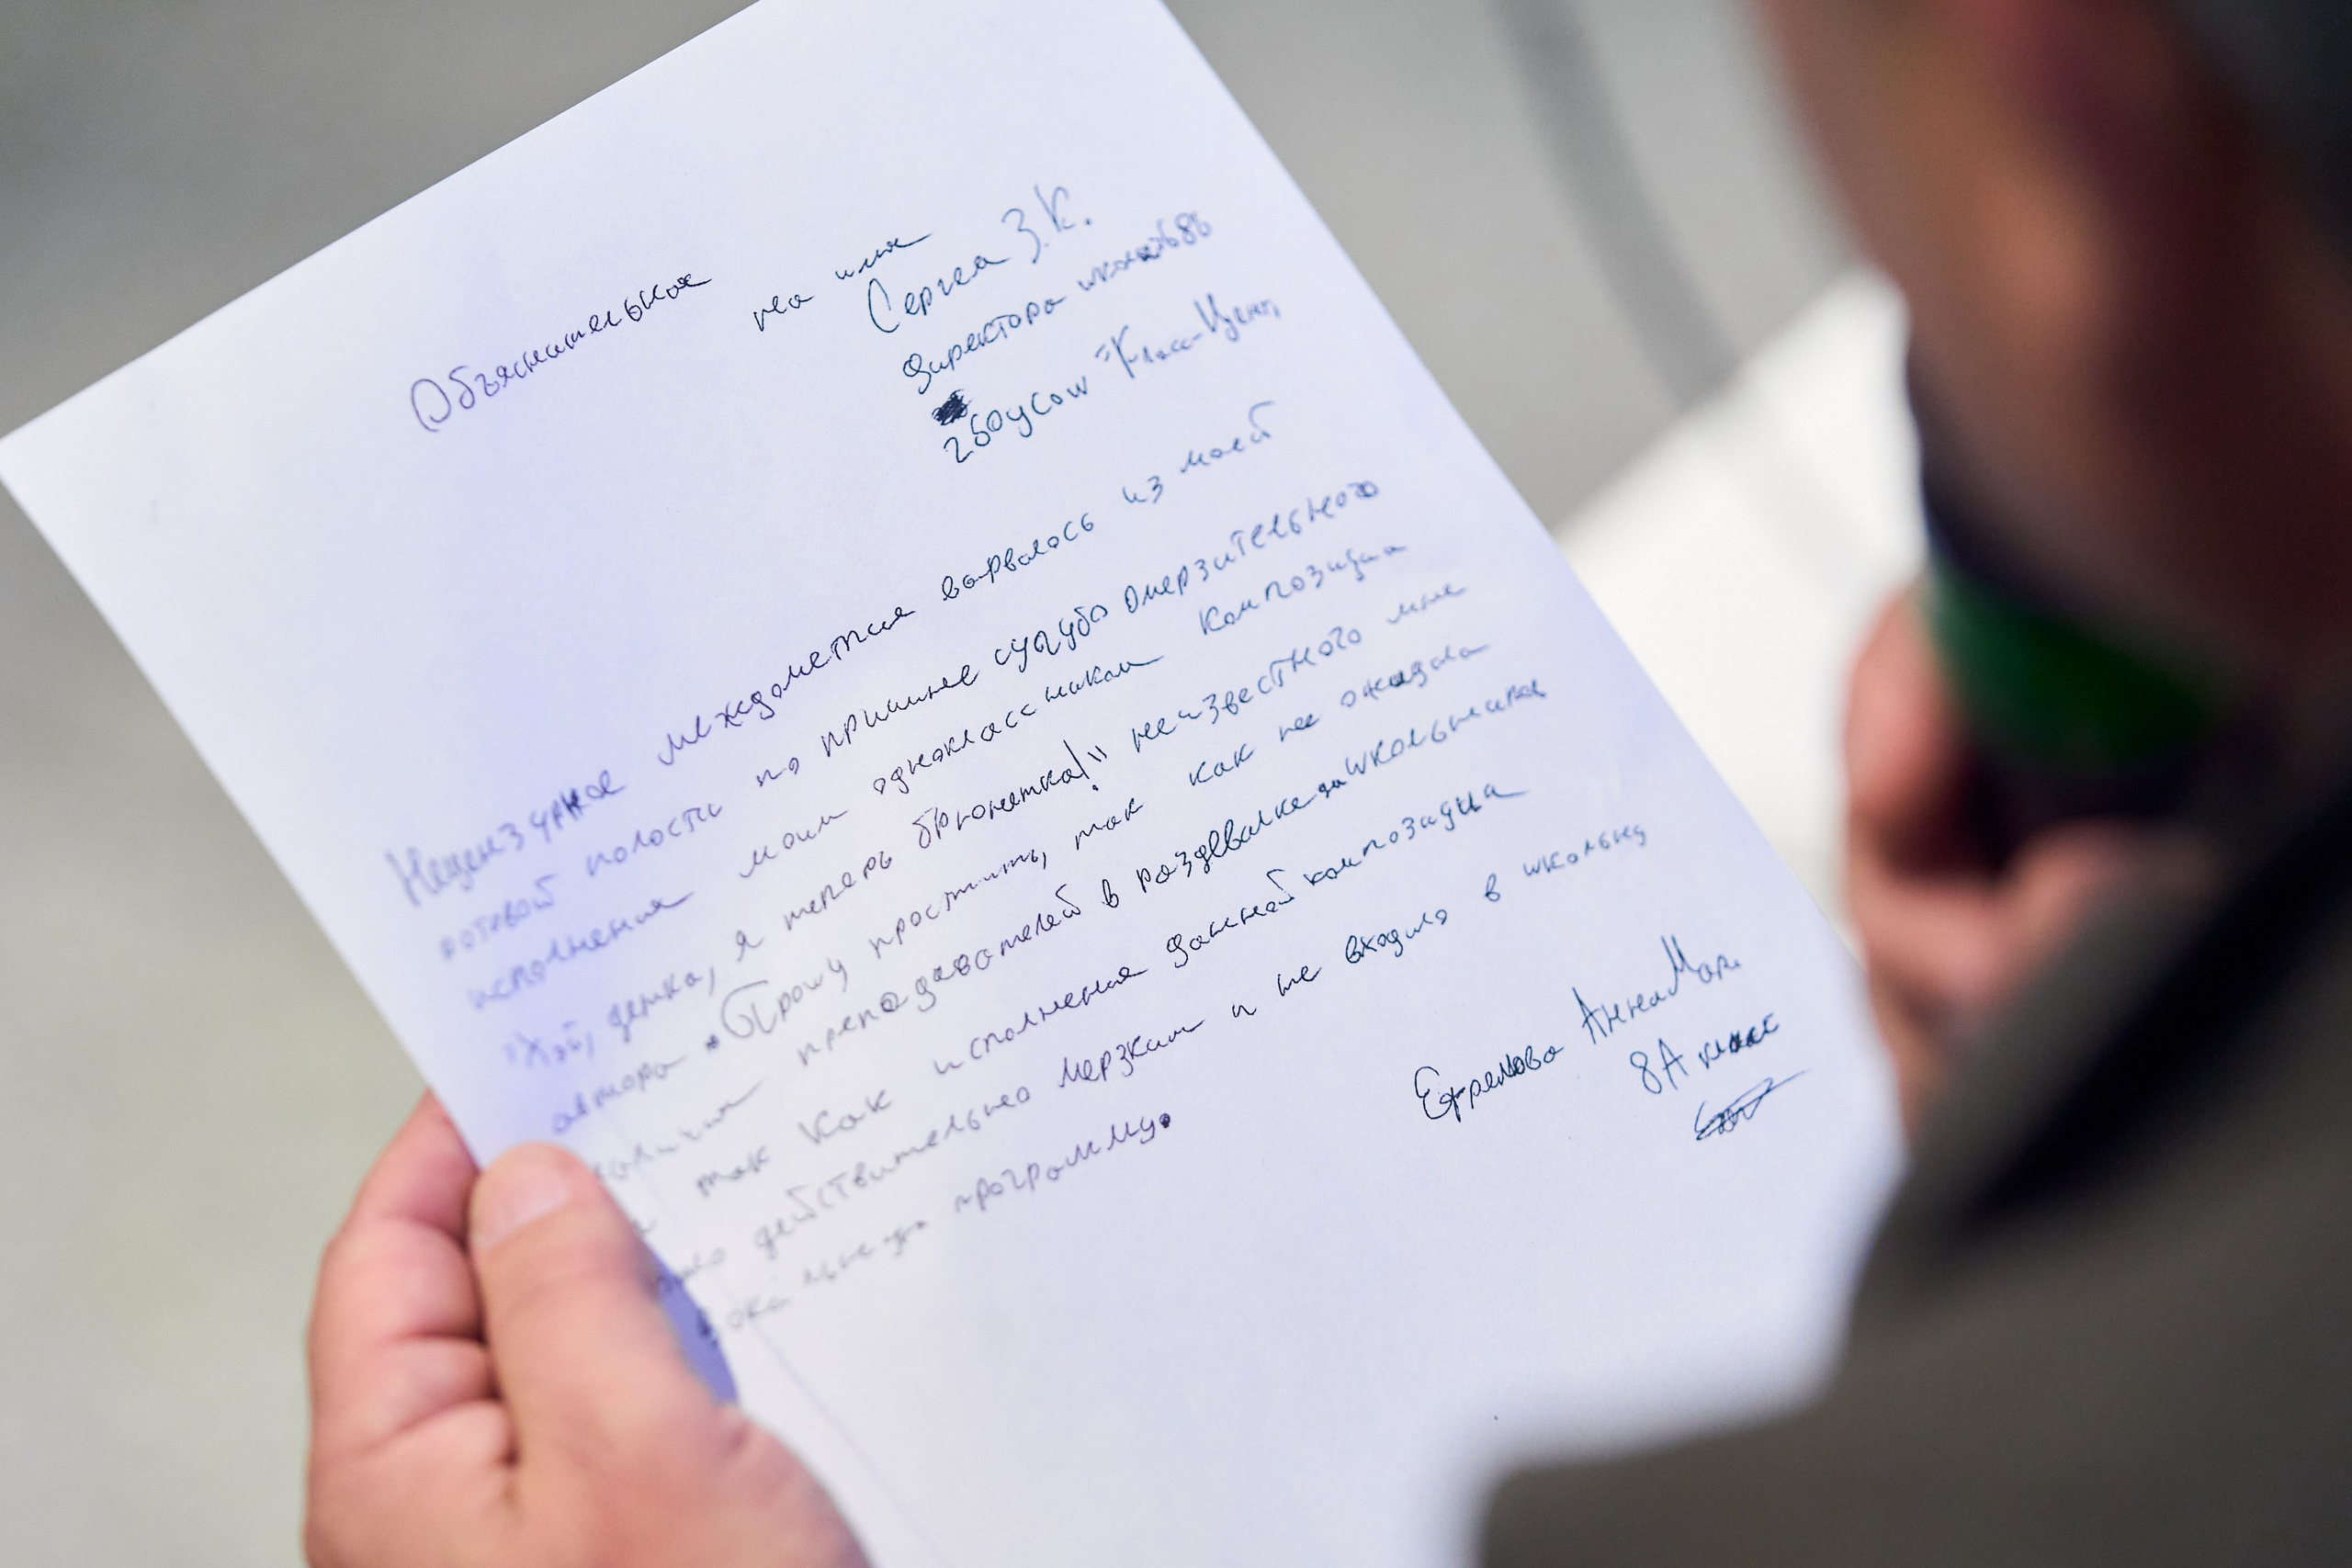 Объяснительная
на имя
Сергея З.К.
директора школы №686
ГБОУСОШ "Класс-Центр
Нецензурное междометия вырвалось из моей
ротовой полости по причине сугубо омерзительного
исполнения моим одноклассником композиции
"Хэй, детка, я теперь брюнетка!" неизвестного мне
автора. Прошу простить, так как не ожидала
преподавателей в раздевалке для школьников
так как исполнение данной композиции
было действительно мерзким и не входило в школьную
вокальную программу.
Ефремова Анна Мар.
8А класс